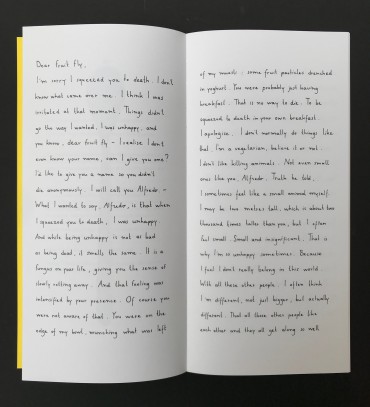 Dear fruit fly,
I'm sorry I squeezed you to death. I don't
know what came over me. I think I was
irritated at that moment. Things didn't
go the way I wanted, I was unhappy, and
you know, dear fruit fly – I realise I don't
even know your name, can I give you one?
I'd like to give you a name so you didn't
die anonymously. I will call you Alfredo –
What I wanted to say, Alfredo, is that when
I squeezed you to death, I was unhappy.
And while being unhappy is not as bad
as being dead, it smells the same. It is a
fungus on your life, giving you the sense of
slowly rotting away. And that feeling was
intensified by your presence. Of course you
were not aware of that. You were on the
edge of my bowl, munching what was left
of my muesli: some fruit particles drenched
in yoghurt. You were probably just having
breakfast. That is no way to die. To be
squeezed to death in your own breakfast.
I apologise. I don't normally do things like
that. I'm a vegetarian, believe it or not.
I don't like killing animals. Not even small
ones like you, Alfredo. Truth be told,
I sometimes feel like a small animal myself.
I may be two metres tall, which is about two
thousand times taller than you, but I often
feel small. Small and insignificant. That is
why I'm so unhappy sometimes. Because
I feel I don't really belong in this world
With all these other people. I often think
I'm different, not just bigger, but actually
different. That all these other people like
each other and they all get along so well